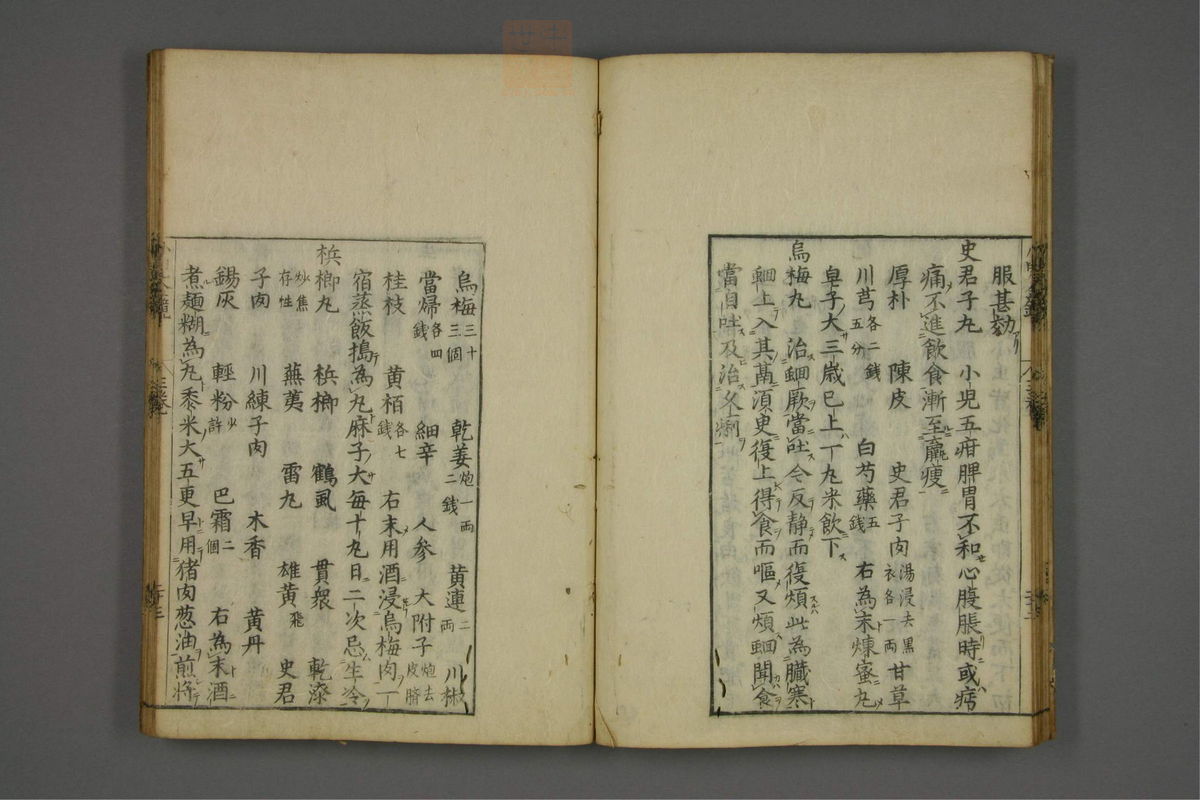 服甚効
史君子丸 小児五疳脾胃不和心腹脹時或㽲
痛不進飲食漸至羸痩
厚朴 陳皮 史君子肉湯浸去黒衣各一両 甘草
川芎各二錢五分 白芍藥五錢 右為末煉蜜丸
皀子大三歳已上一丸米飲下
烏梅丸 治蛔厥當吐令反静而復煩此為臓寒
蛔上入其鬲湏臾復上得食而嘔又煩蛔聞食
當自吐及治久痢
烏梅三十三個 乾姜炮一両二錢 黄連二両 川椒
當帰各四錢 細辛 人参 大附子炮去皮臍
桂枝 黄栢各七錢 右末用酒浸烏梅肉一
宿蒸飯搗為丸麻子大毎十九日二次忌生冷
梹榔丸 梹榔 鶴虱 貫衆 乾漆
炒焦存性 蕪荑 雷丸 雄黄飛 史君
子肉 川練子肉 木香 黄丹
錫灰 輕粉少許 巴霜二個 右為末酒
煮麺糊為丸黍米大五更早用猪肉葱油煎将